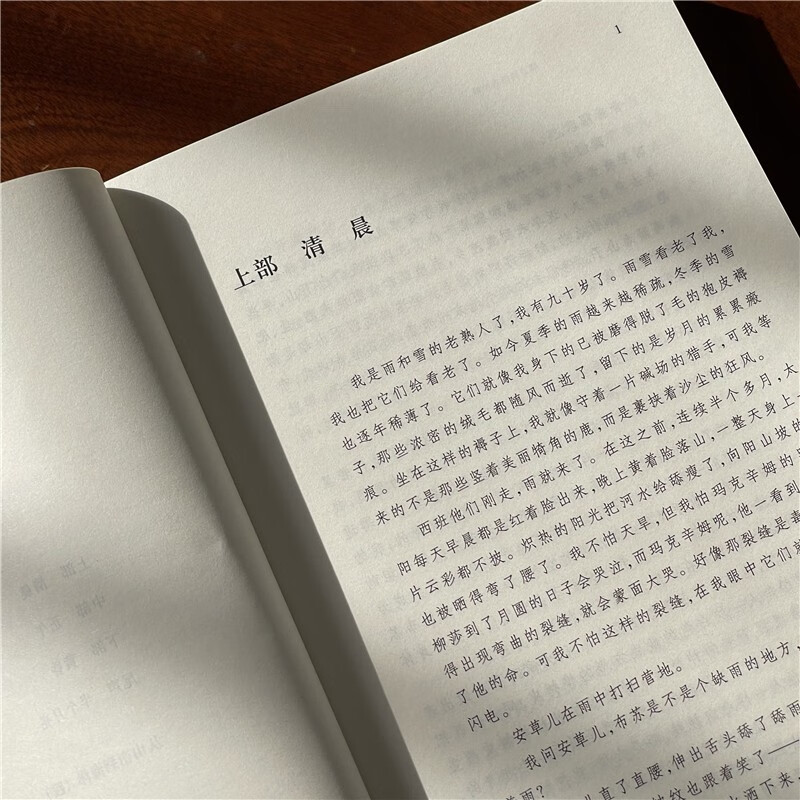 1
上部 清晨
我是雨和雪的老熟人了，我有九十岁了。雨雪看老了我，
我也把它们给看老了。如今夏季的雨越来越稀疏，冬季的雪
也逐年稀薄了。它们就像我身下的已被磨得脱了毛的狍皮褥
子，那些浓密的绒毛都随风而逝了，留下的是岁月的累累瘢
痕。坐在这样的褥子上，我就像守着一片碱场的猎手，可我等
来的不是那些竖着美丽犄角的鹿，而是裹挟着沙尘的狂风。
西班他们刚走，雨就来了。在这之前，连续半个多月，太
阳每天早晨都是红着脸出来，晚上黄着脸落山，一整天身上一
片云彩都不披。炽热的阳光把河水给舔瘦了，向阳山坡的
也被晒得弯了腰了。我不怕天旱，但我怕玛克辛姆的
柳莎到了月圆的日子会哭泣，而玛克辛姆呢，他一看到
得出现弯曲的裂缝，就会蒙面大哭。好像那裂缝是毒
了他的命。可我不怕这样的裂缝，在我眼中它们就
闪电。
安草儿在雨中打扫营地。
我问安草儿，布苏是不是个缺雨的地方，
雨？
直了直腰，伸出舌头舔了舔雨
纹也跟着笑了——
洒下来